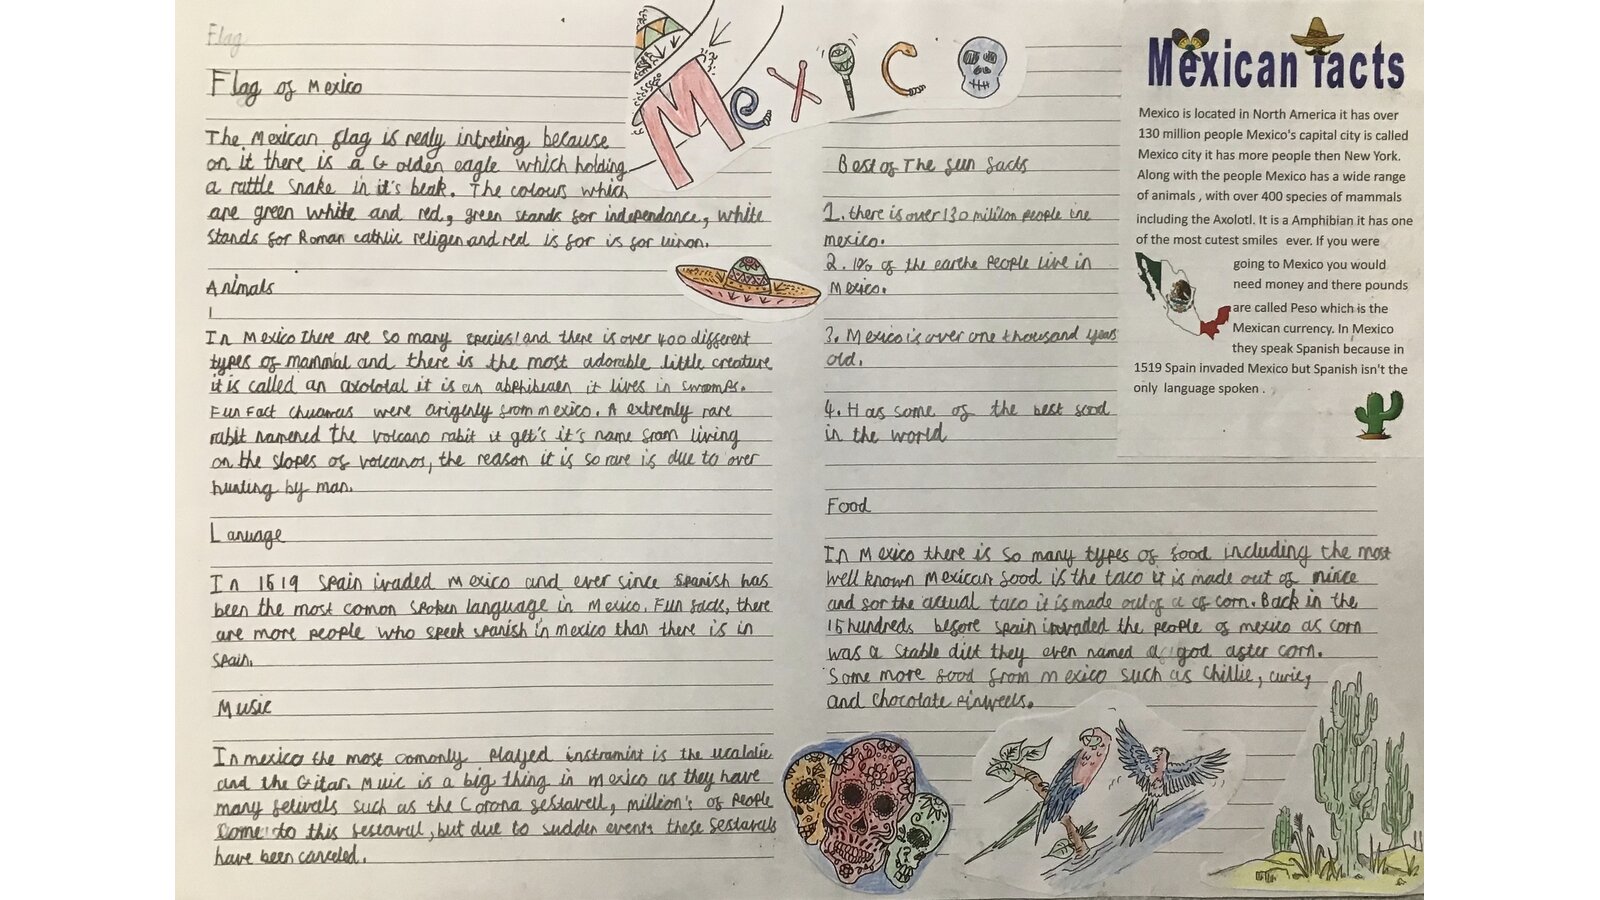 Flag
Flag of Mexico
The Mexican flag is really intreting because
on it there is a Golden eagle which holding
a rattle snake in it's beak. The colours which
are green white and red, green stands for independance, white
stands for Roman cathlic religen and red is for is for uinon.
Animals
In Mexico there are so many species! and there is over 400 different
types of mammal and there is the most adorable little creature
it is called an axolotal it is an abphibiaen it lives in swomps.
Fun Fact chuawas were origenly from mexico. A extremly rare
rabit namened the volcano rabit it get's it's name from living
on the slopes of volcanos, the reason it is so rare is due to over
hunting by man.
Lanuage
In 1519 Spain ivaded Mexico and ever since spanish has
been the most comon spoken language in Mexico. Fun facts, there
are more people who speek spanish in mexico than there is in
Spain.
Music
In mexico the most comonly played instramint is the ucalalie
and the Gitar. Muic is a big thing in mexico as they have
many fetivals such as the Corona festavell, million's of people
come to this festaval, but due to sudden events these festavals
have been canceled.
Mexico
Best of The fun facts
1. there is over 130 mililon people ine
mexico.
2. 1% of the earthe people live in
Mexico.
3. Mexico is over one thousand years
old.
4. Has some of the best food
in the world
Food
In Mexico there is so many types of food including the most
well known Mexican food is the taco it is made out of mince
and for the actual taco it is made out of a of corn. Back in the
15 hundreds before spain invaded the people of mexico as corn
was a stable dilt they even named a god after corn.
Some more food from mexico such as chillie, curie,
and chocolate pinweels.
Mexican facts
Mexico is located in North America it has over
130 million people Mexico's capital city is called
Mexico city it has more people then New York.
Along with the people Mexico has a wide range
of animals , with over 400 species of mammals
including the Axolotl. It is a Amphibian it has one
of the most cutest smiles ever. If you were
going to Mexico you would
need money and there pounds
are called Peso which is the
Mexican currency. In Mexico
they speak Spanish because in
1519 Spain invaded Mexico but Spanish isn't the
only language spoken .